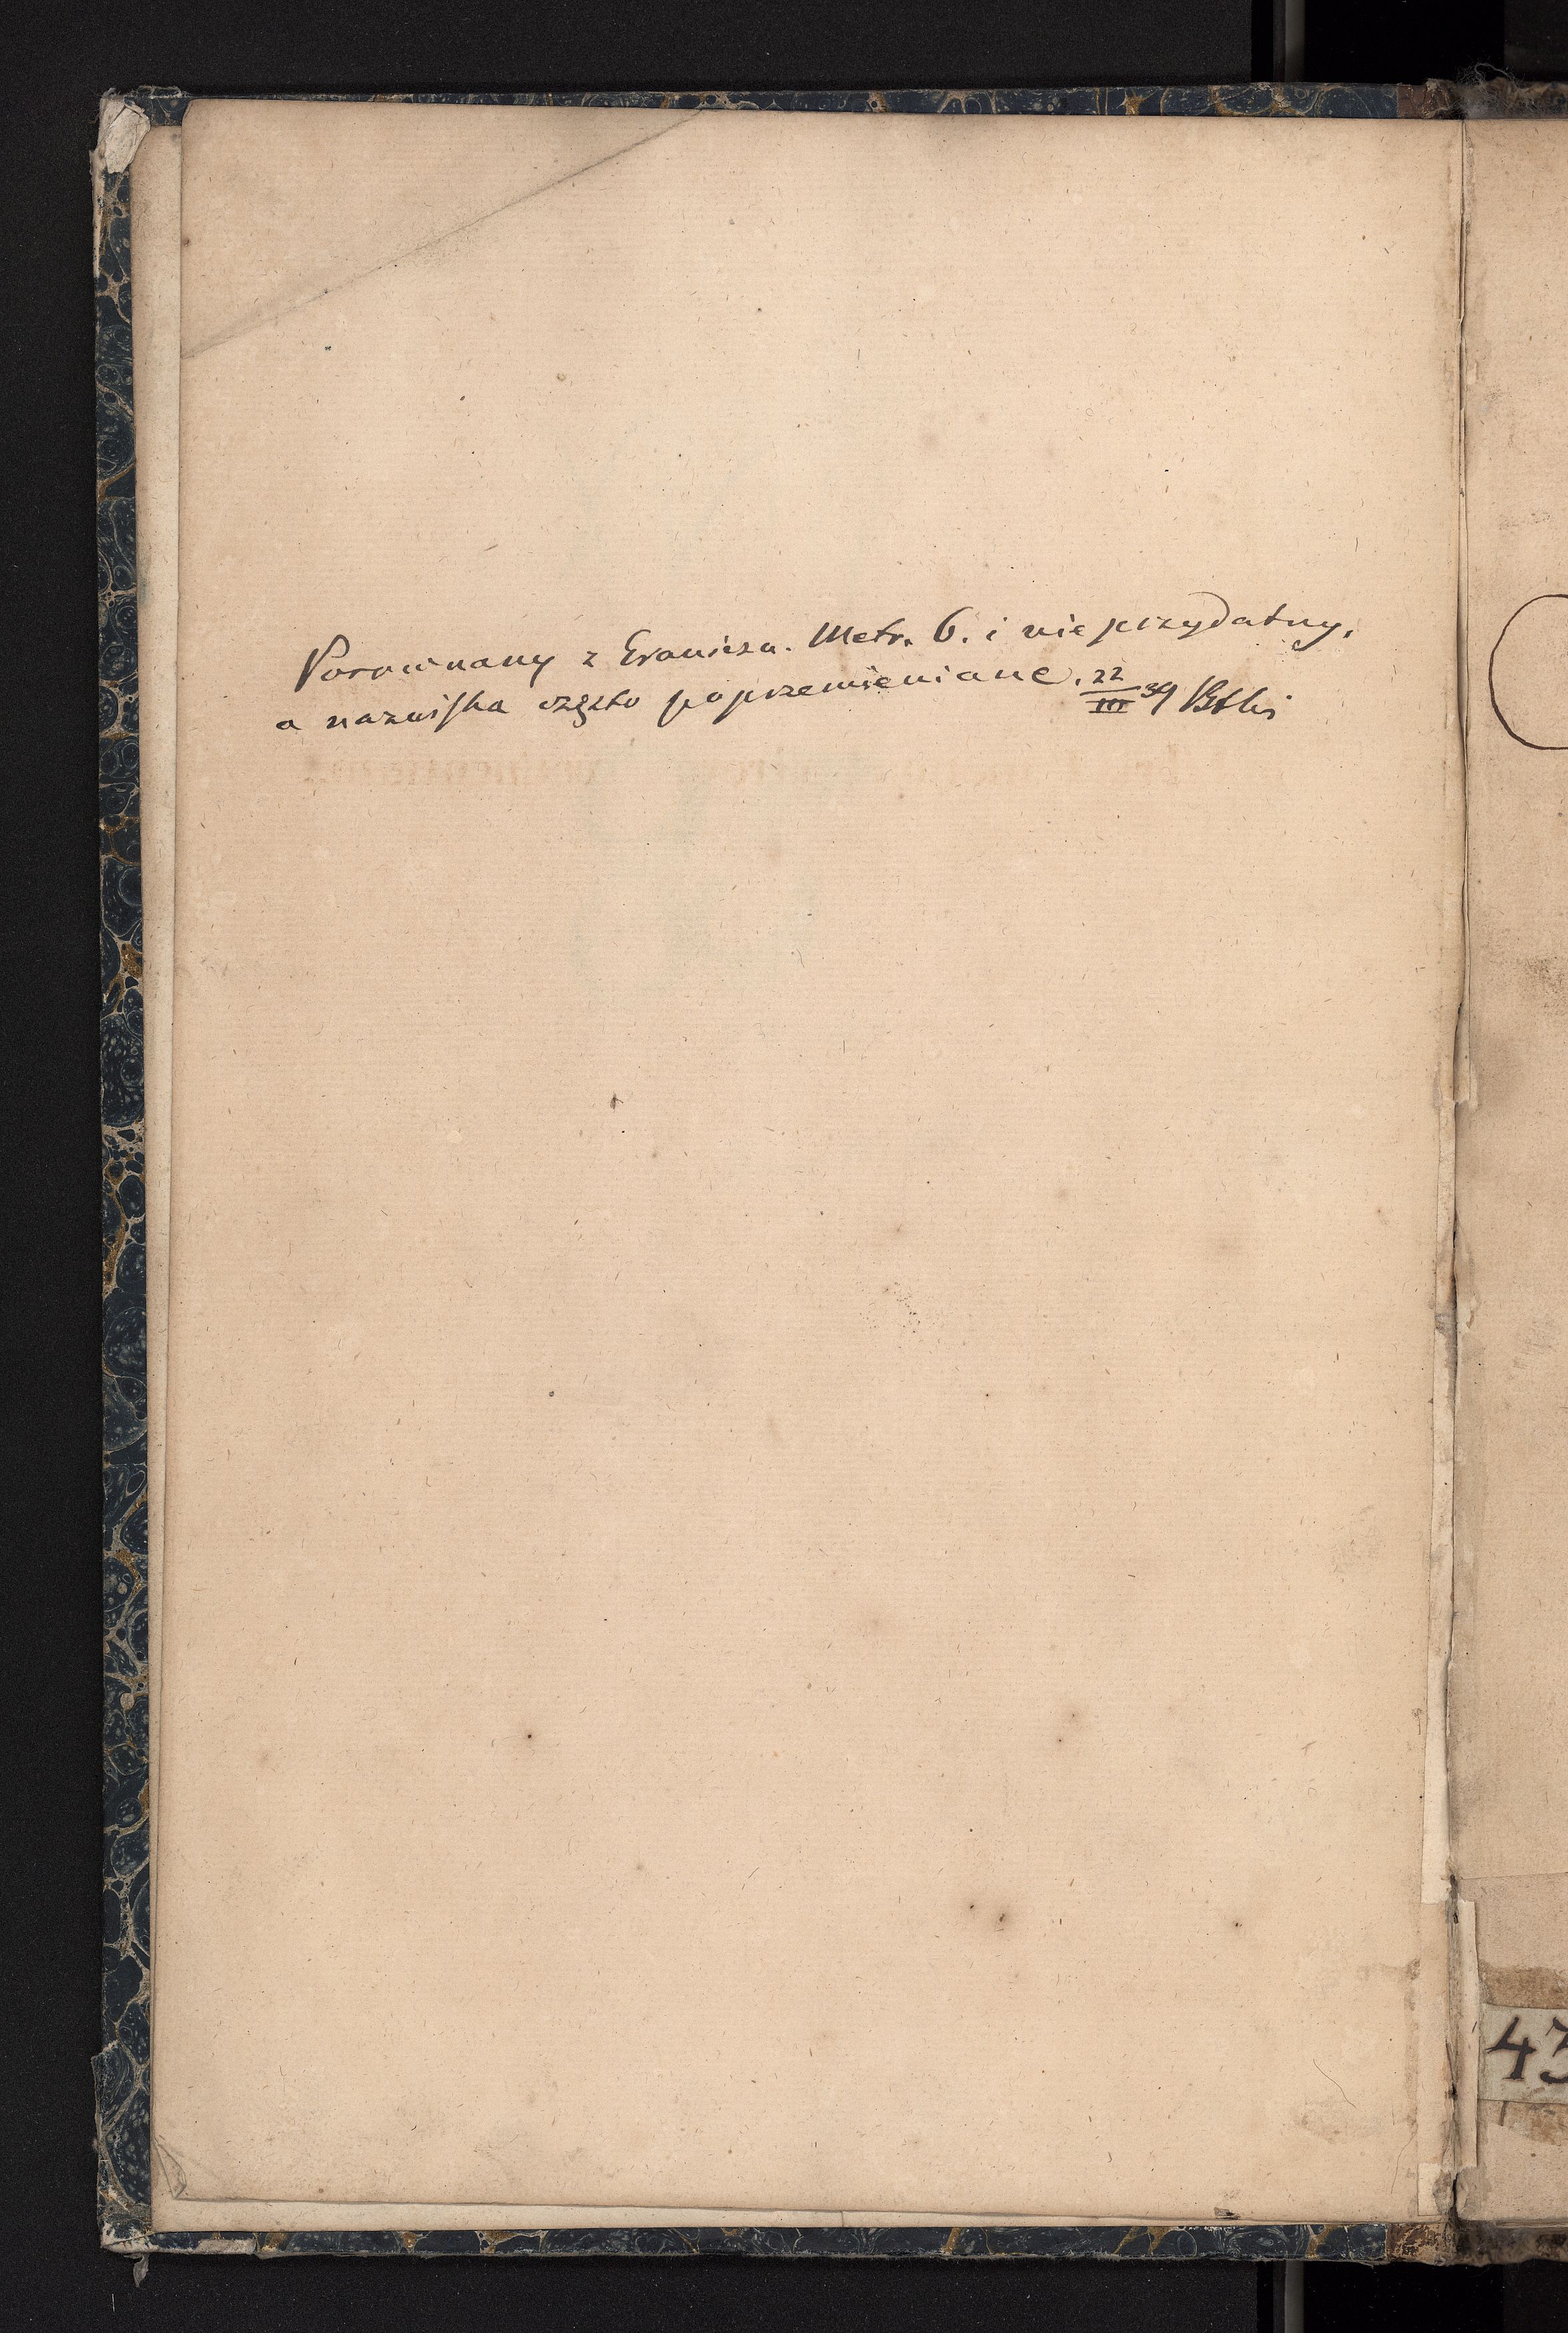 Porównany z Graniczn. Metr. 6. i nieprzydatny,
a nazwiska często poprzemieniane. 22/III 39
43